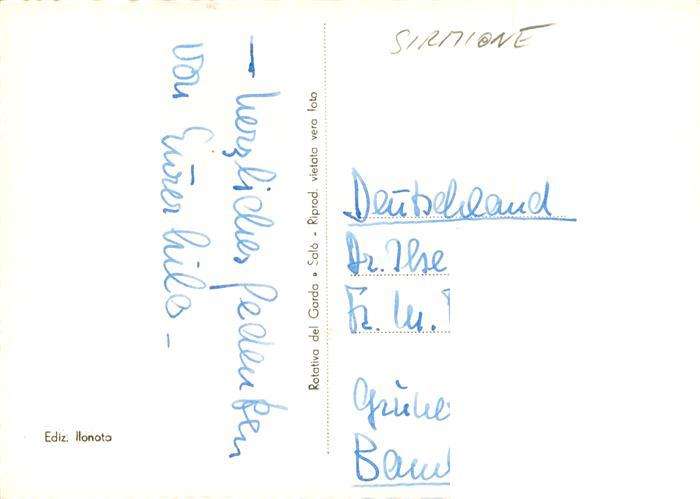 SIRMIONE
— herzliches Gedenken
von Eurer Hilo –
Rotativa del Garda • Salò - Riprod. vietata vera foto
Deutschland
Dr. Ilse
Fr. M.
Ediz. Ilonota